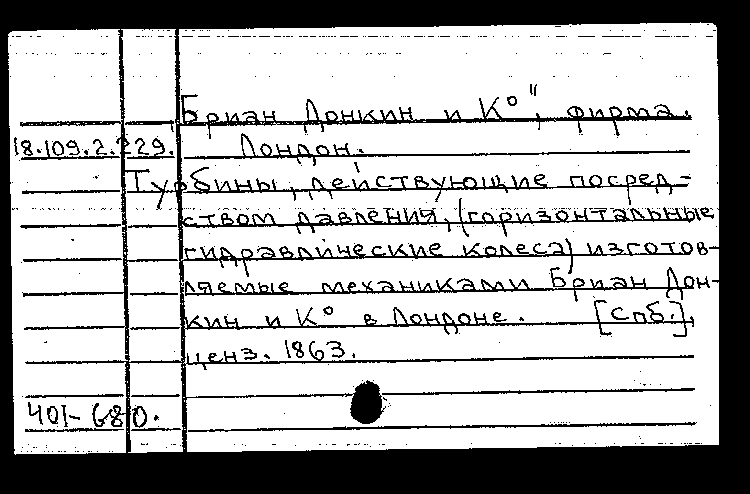 „Бриан Донкин и К°", фирма.
18.109.2.229. Лондон.
Турбины, действующие посред-
ством давления, (горизонтальные
гидравлические колеса) изготов-
ляемые механиками Бриан Дон-
кин и К° в Лондоне. [Спб.],
ценз. 1863.
401-680.